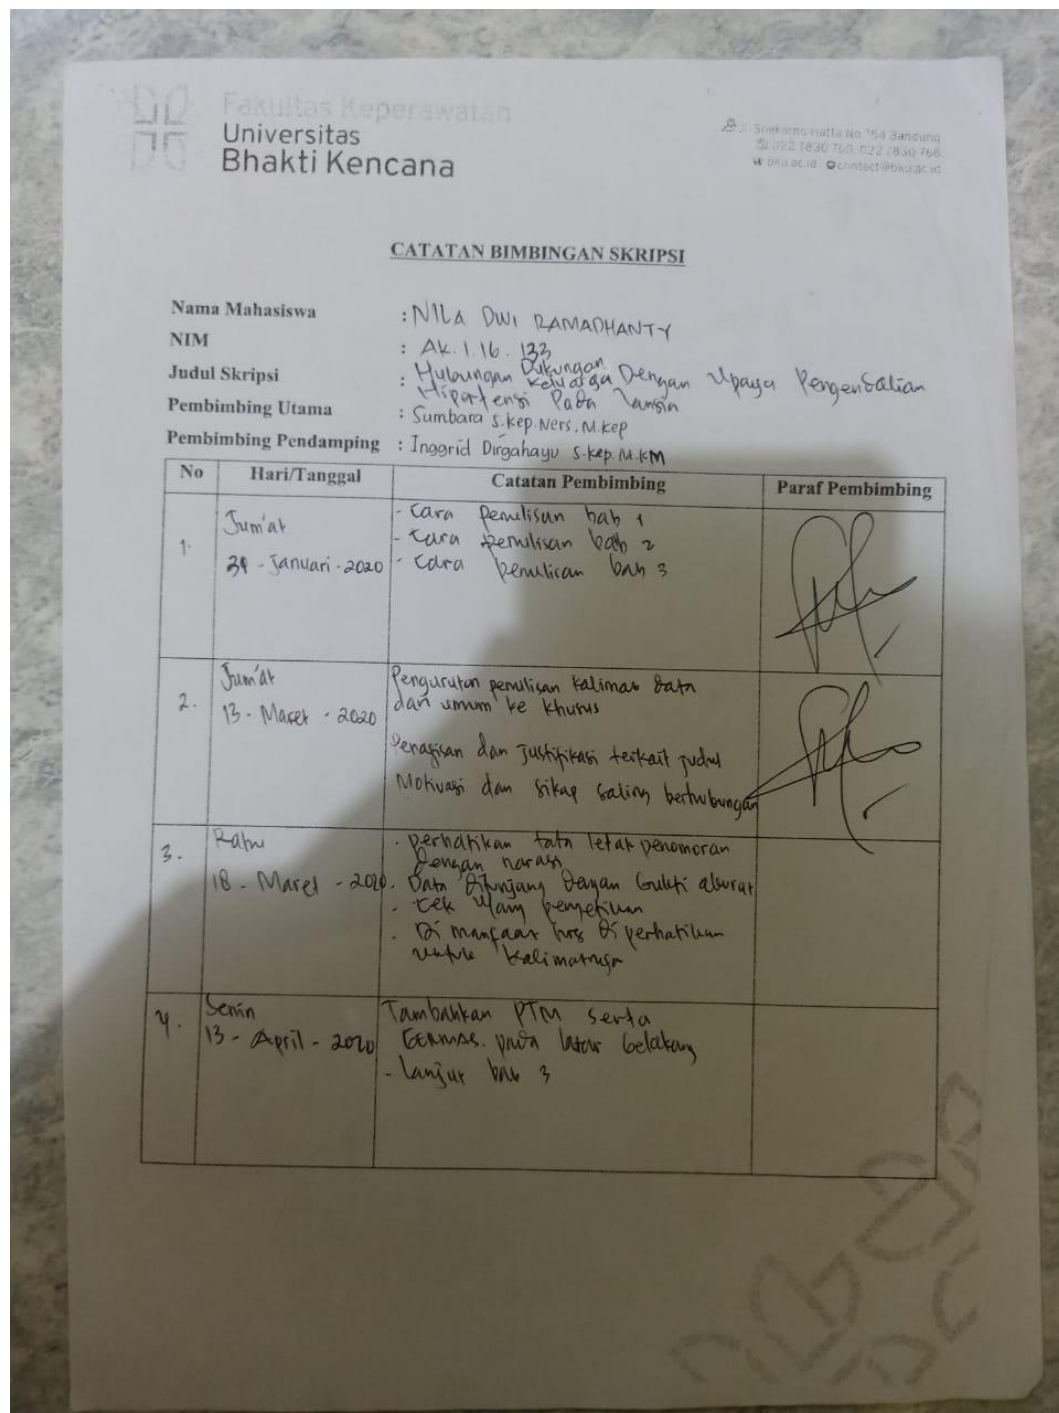 Fakultas Keperawatan
Universitas
Bhakti Kencana
Jl. Soekarno Hatta No 754 Bandung
022 7830 760, 022 7830 768
bku.ac.id contact@bku.ac.id
CATATAN BIMBINGAN SKRIPSI
Nama Mahasiswa : NILA DWI RAMADHANTY
NIM : AK.1.16.133
Judul Skripsi : Hubungan Dukungan Keluarga Dengan Upaya Pengendalian
Hipertensi Pada Lansia
Pembimbing Utama : Sumbara S.Kep.Ners.M.Kep
Pembimbing Pendamping : Inggrid Dirgahayu S.Kep.M.KM
No Hari/Tanggal Catatan Pembimbing Paraf Pembimbing
1. Jum'at
31 - Januari - 2020
- Cara penulisan bab 1
- Cara penulisan bab 2
- Cara penulisan bab 3
2. Jum'at
13 - Maret - 2020
Pengurutan penulisan kalimat data
dari umum ke khusus
dan justifikasi terkait judul
Motivasi dan sikap saling berhubungan
3. Rabu
18 - Maret - 2020
- perhatikan tata letak penomoran
dengan narasi
- Data ditunjang dengan bukti akurat
- cek ulang pengetikan
- Di manfaat diperhatikan
untuk kalimatnya
4. Senin
13 - April - 2020
Tambahkan PTM serta
GERMAS. pada latar belakang
- lanjut bab 3